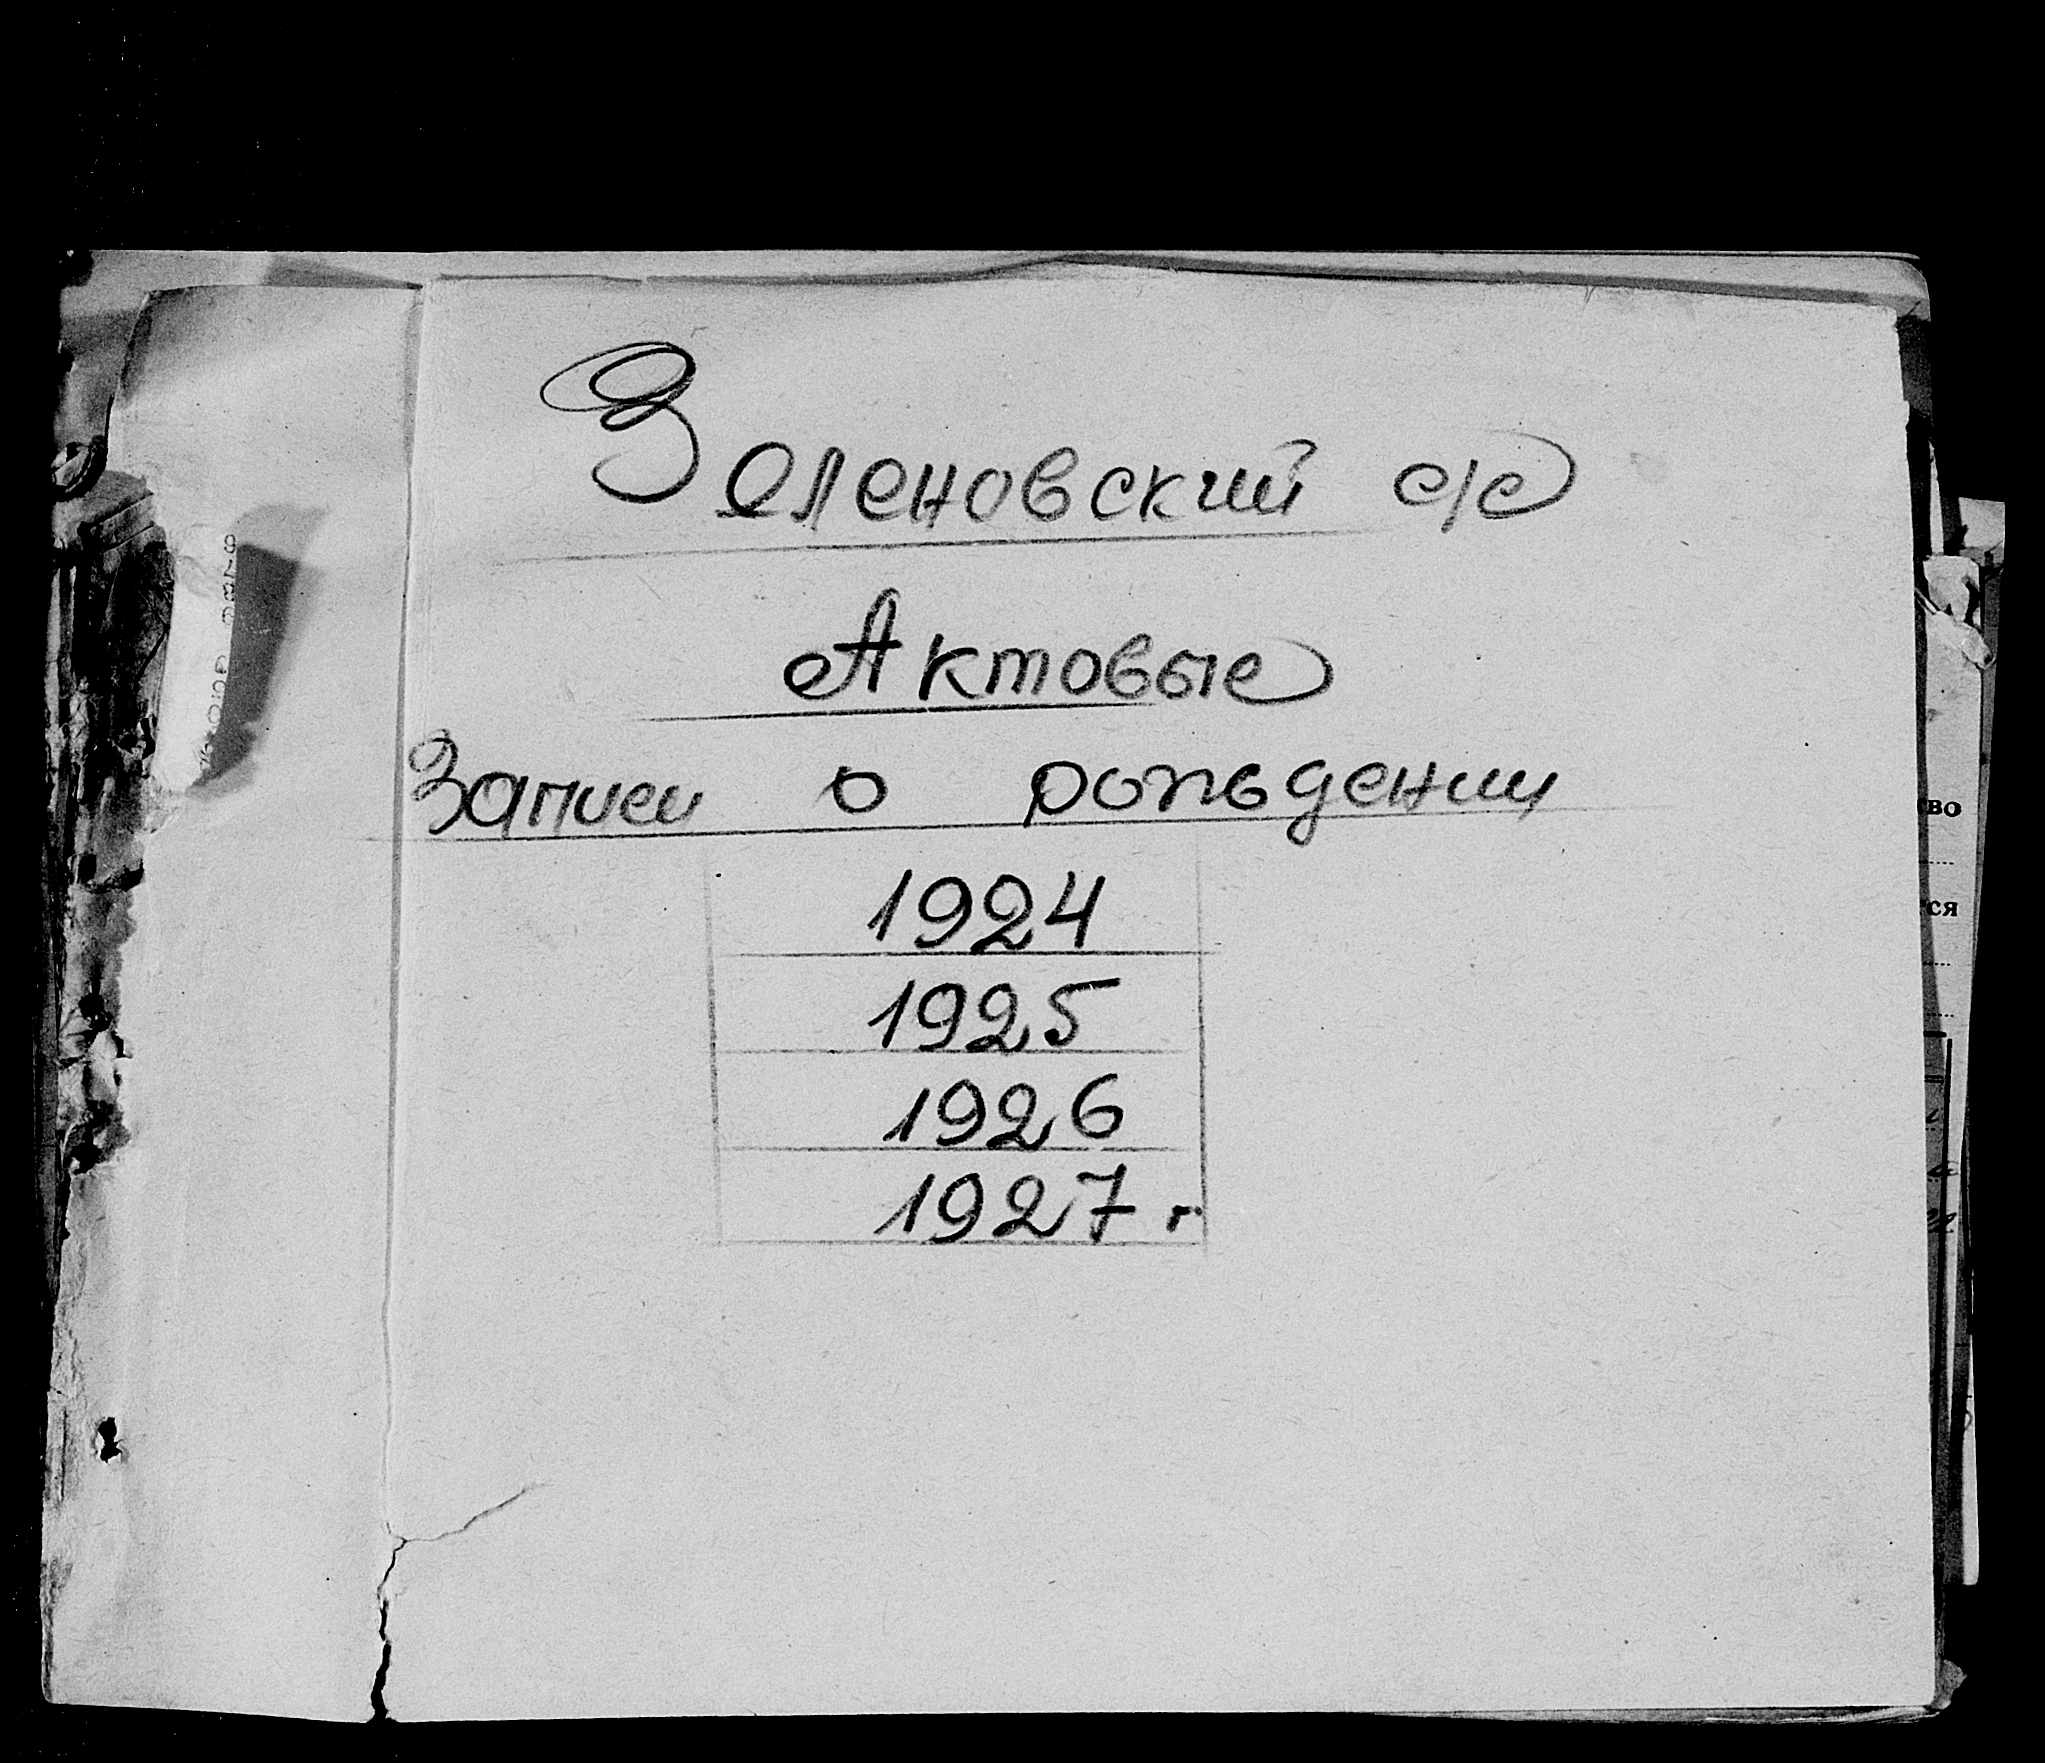 Зеленовский с/с
Актовые
Записи о рождении
1924
1925
1926
1927 г
во
ся